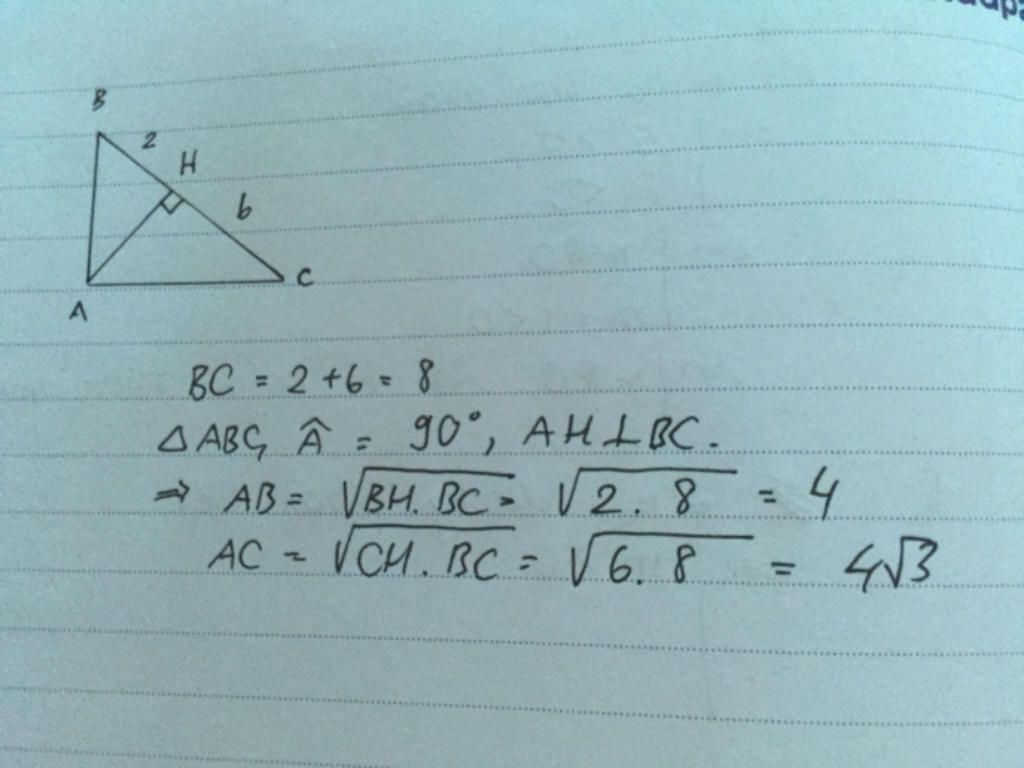 B
2
H
6
C
A
BC = 2 + 6 = 8
△ ABC, Â = 90°, AH ⊥ BC.
⇒ AB = √BH. BC = √2. 8 = 4
AC = √CH. BC = √6. 8 = 4√3